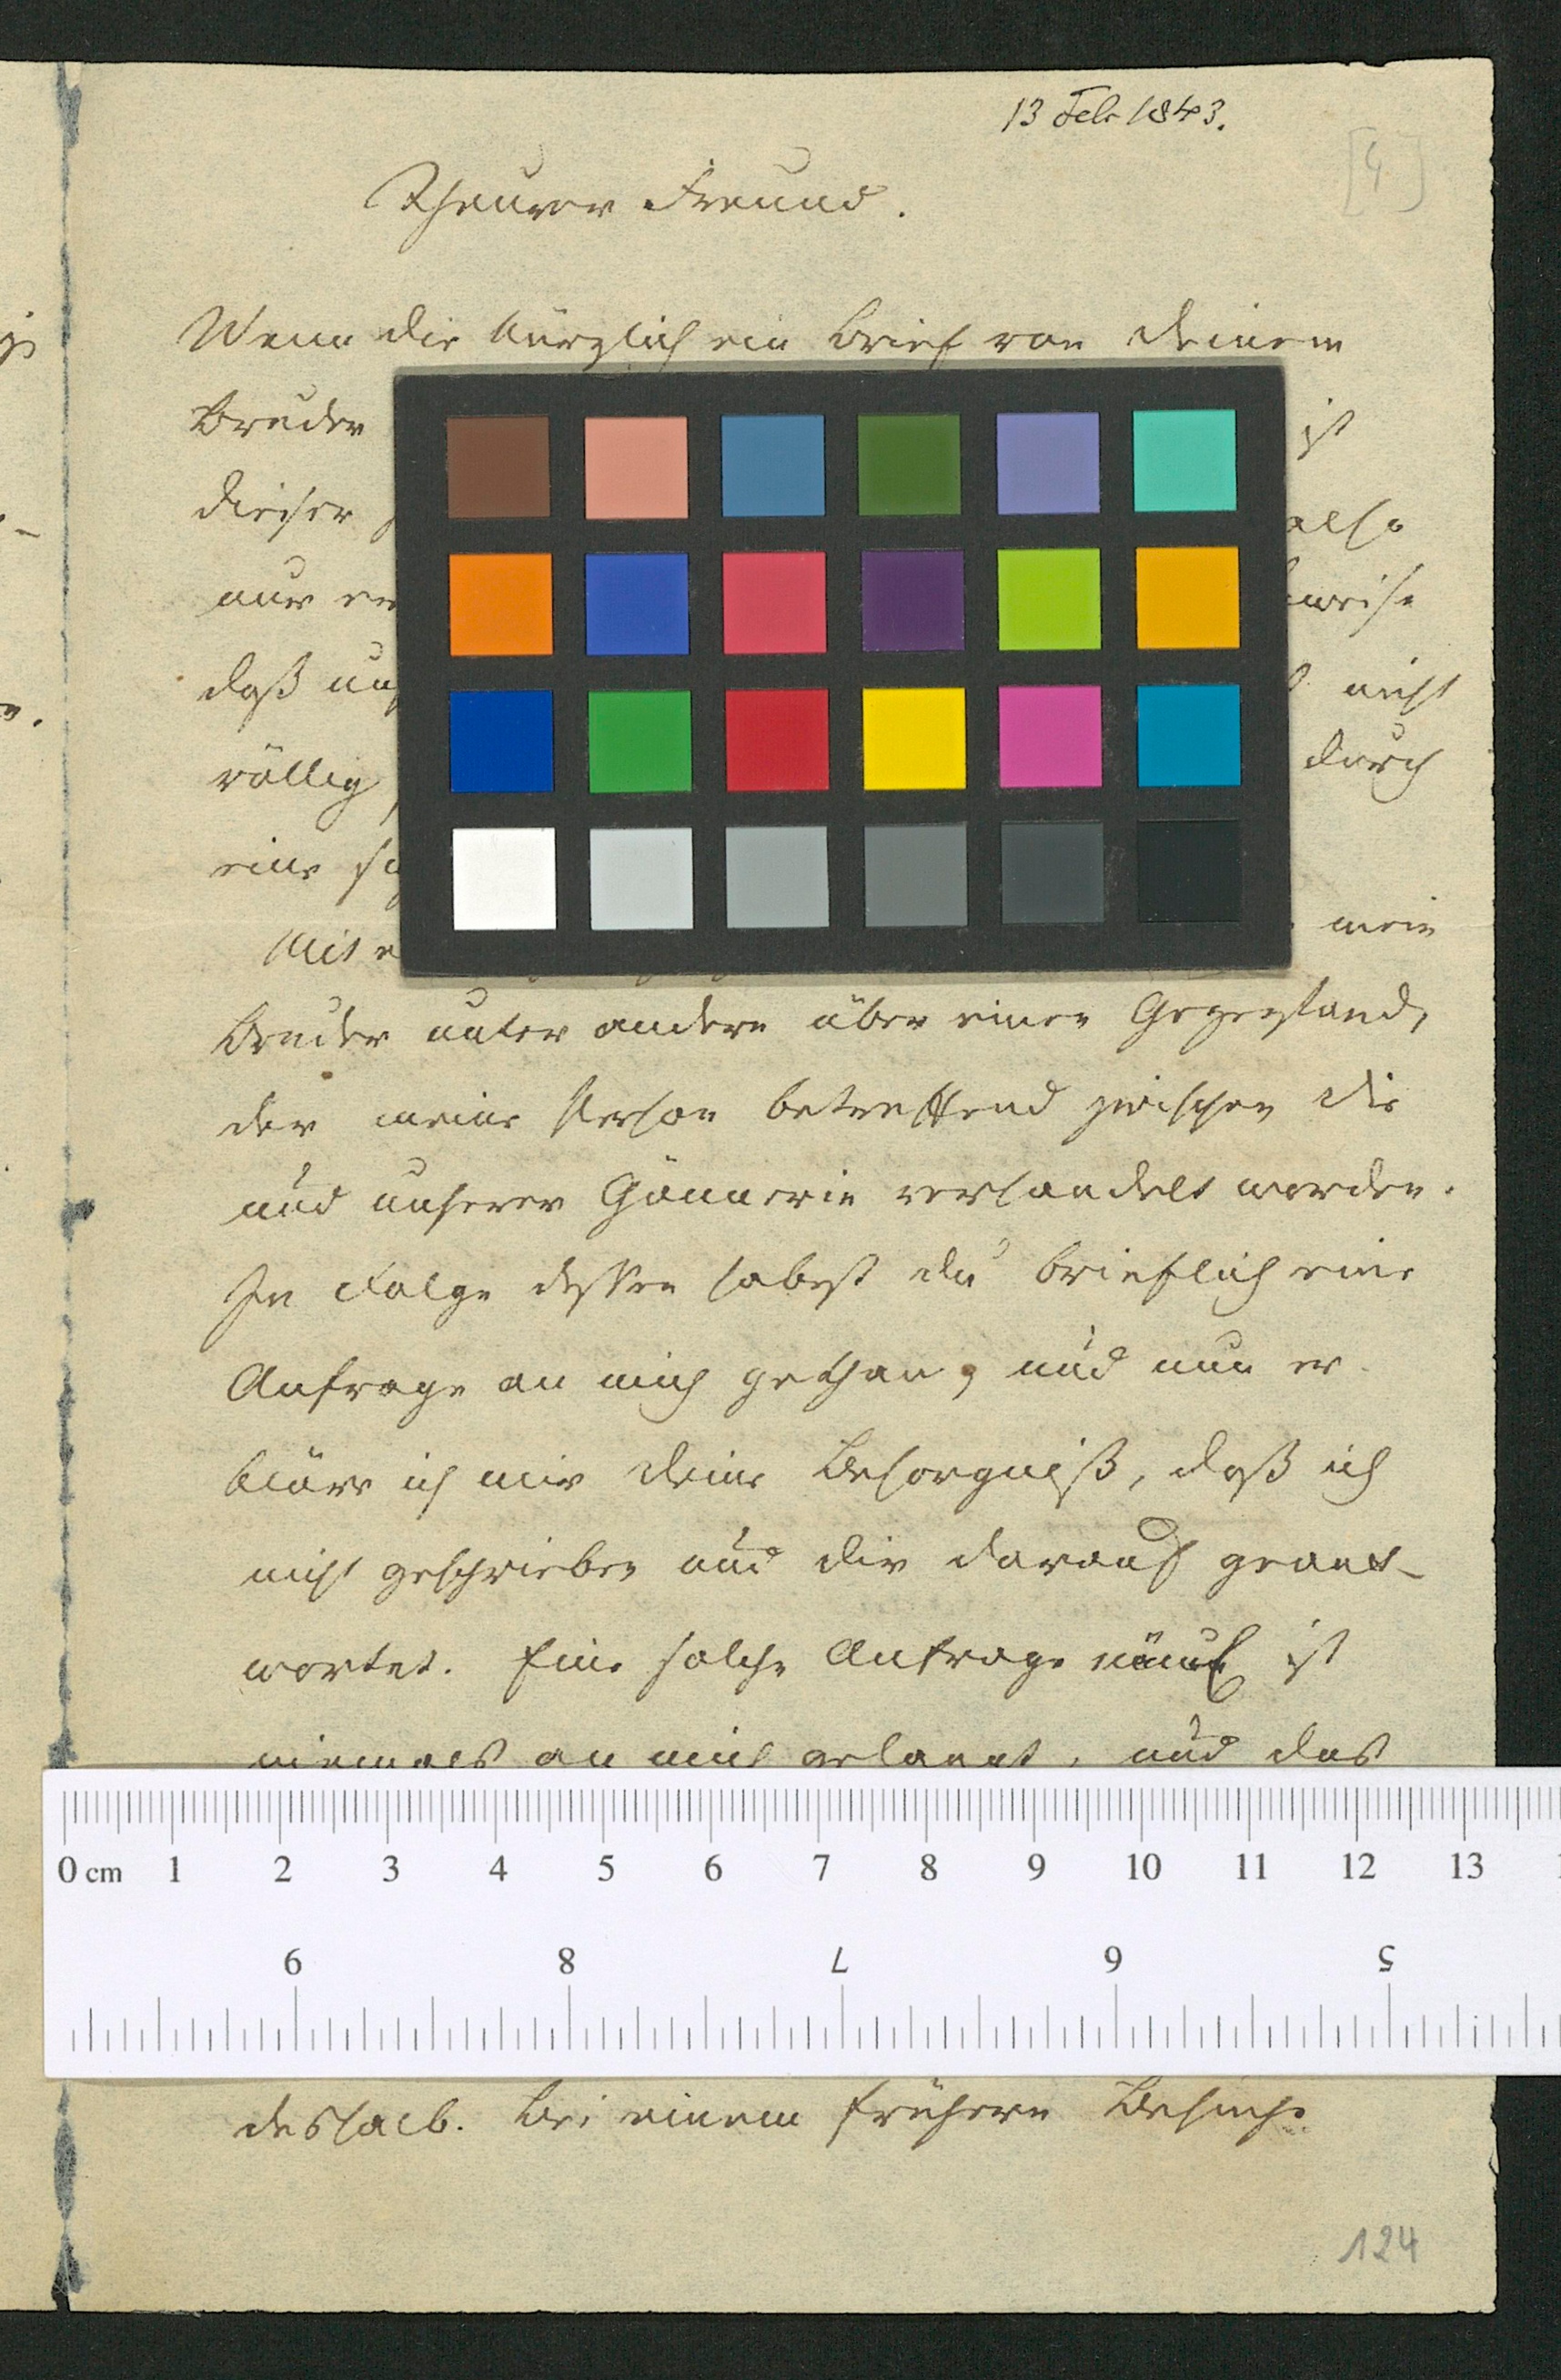 13 Feb 1843.
[4]
Theurer Freund.
Wenn dir kürzlich ein Brief von deinem
Bruder ist
dieser also
nur
daß nicht
völlig durch
eine
mein
Bruder unter andern über einen Gegenstand,
der meine Person betreffend zwischen dir
und unserer Gönnerin verhandelt worden.
In Folge dessen habest du brieflich eine
Anfrage an mich gethan, und nun er
kläre ich mir deine Besorgniß, daß ich
nicht geschrieben und dir darauf geant-
wortet. Eine solche Anfrage nämlich ist
niemals an mich gelangt, und das
0 cm 1 2 3 4 5 6 7 8 9 10 11 12 13
9 8 7 6 5
deshalb. Bei einem frühern Besuche
124